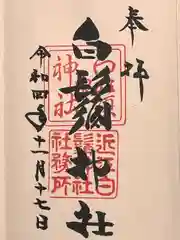 奉拝
白鬚神社
令和四年十一月十七日
近江白
鬚神社
社務所